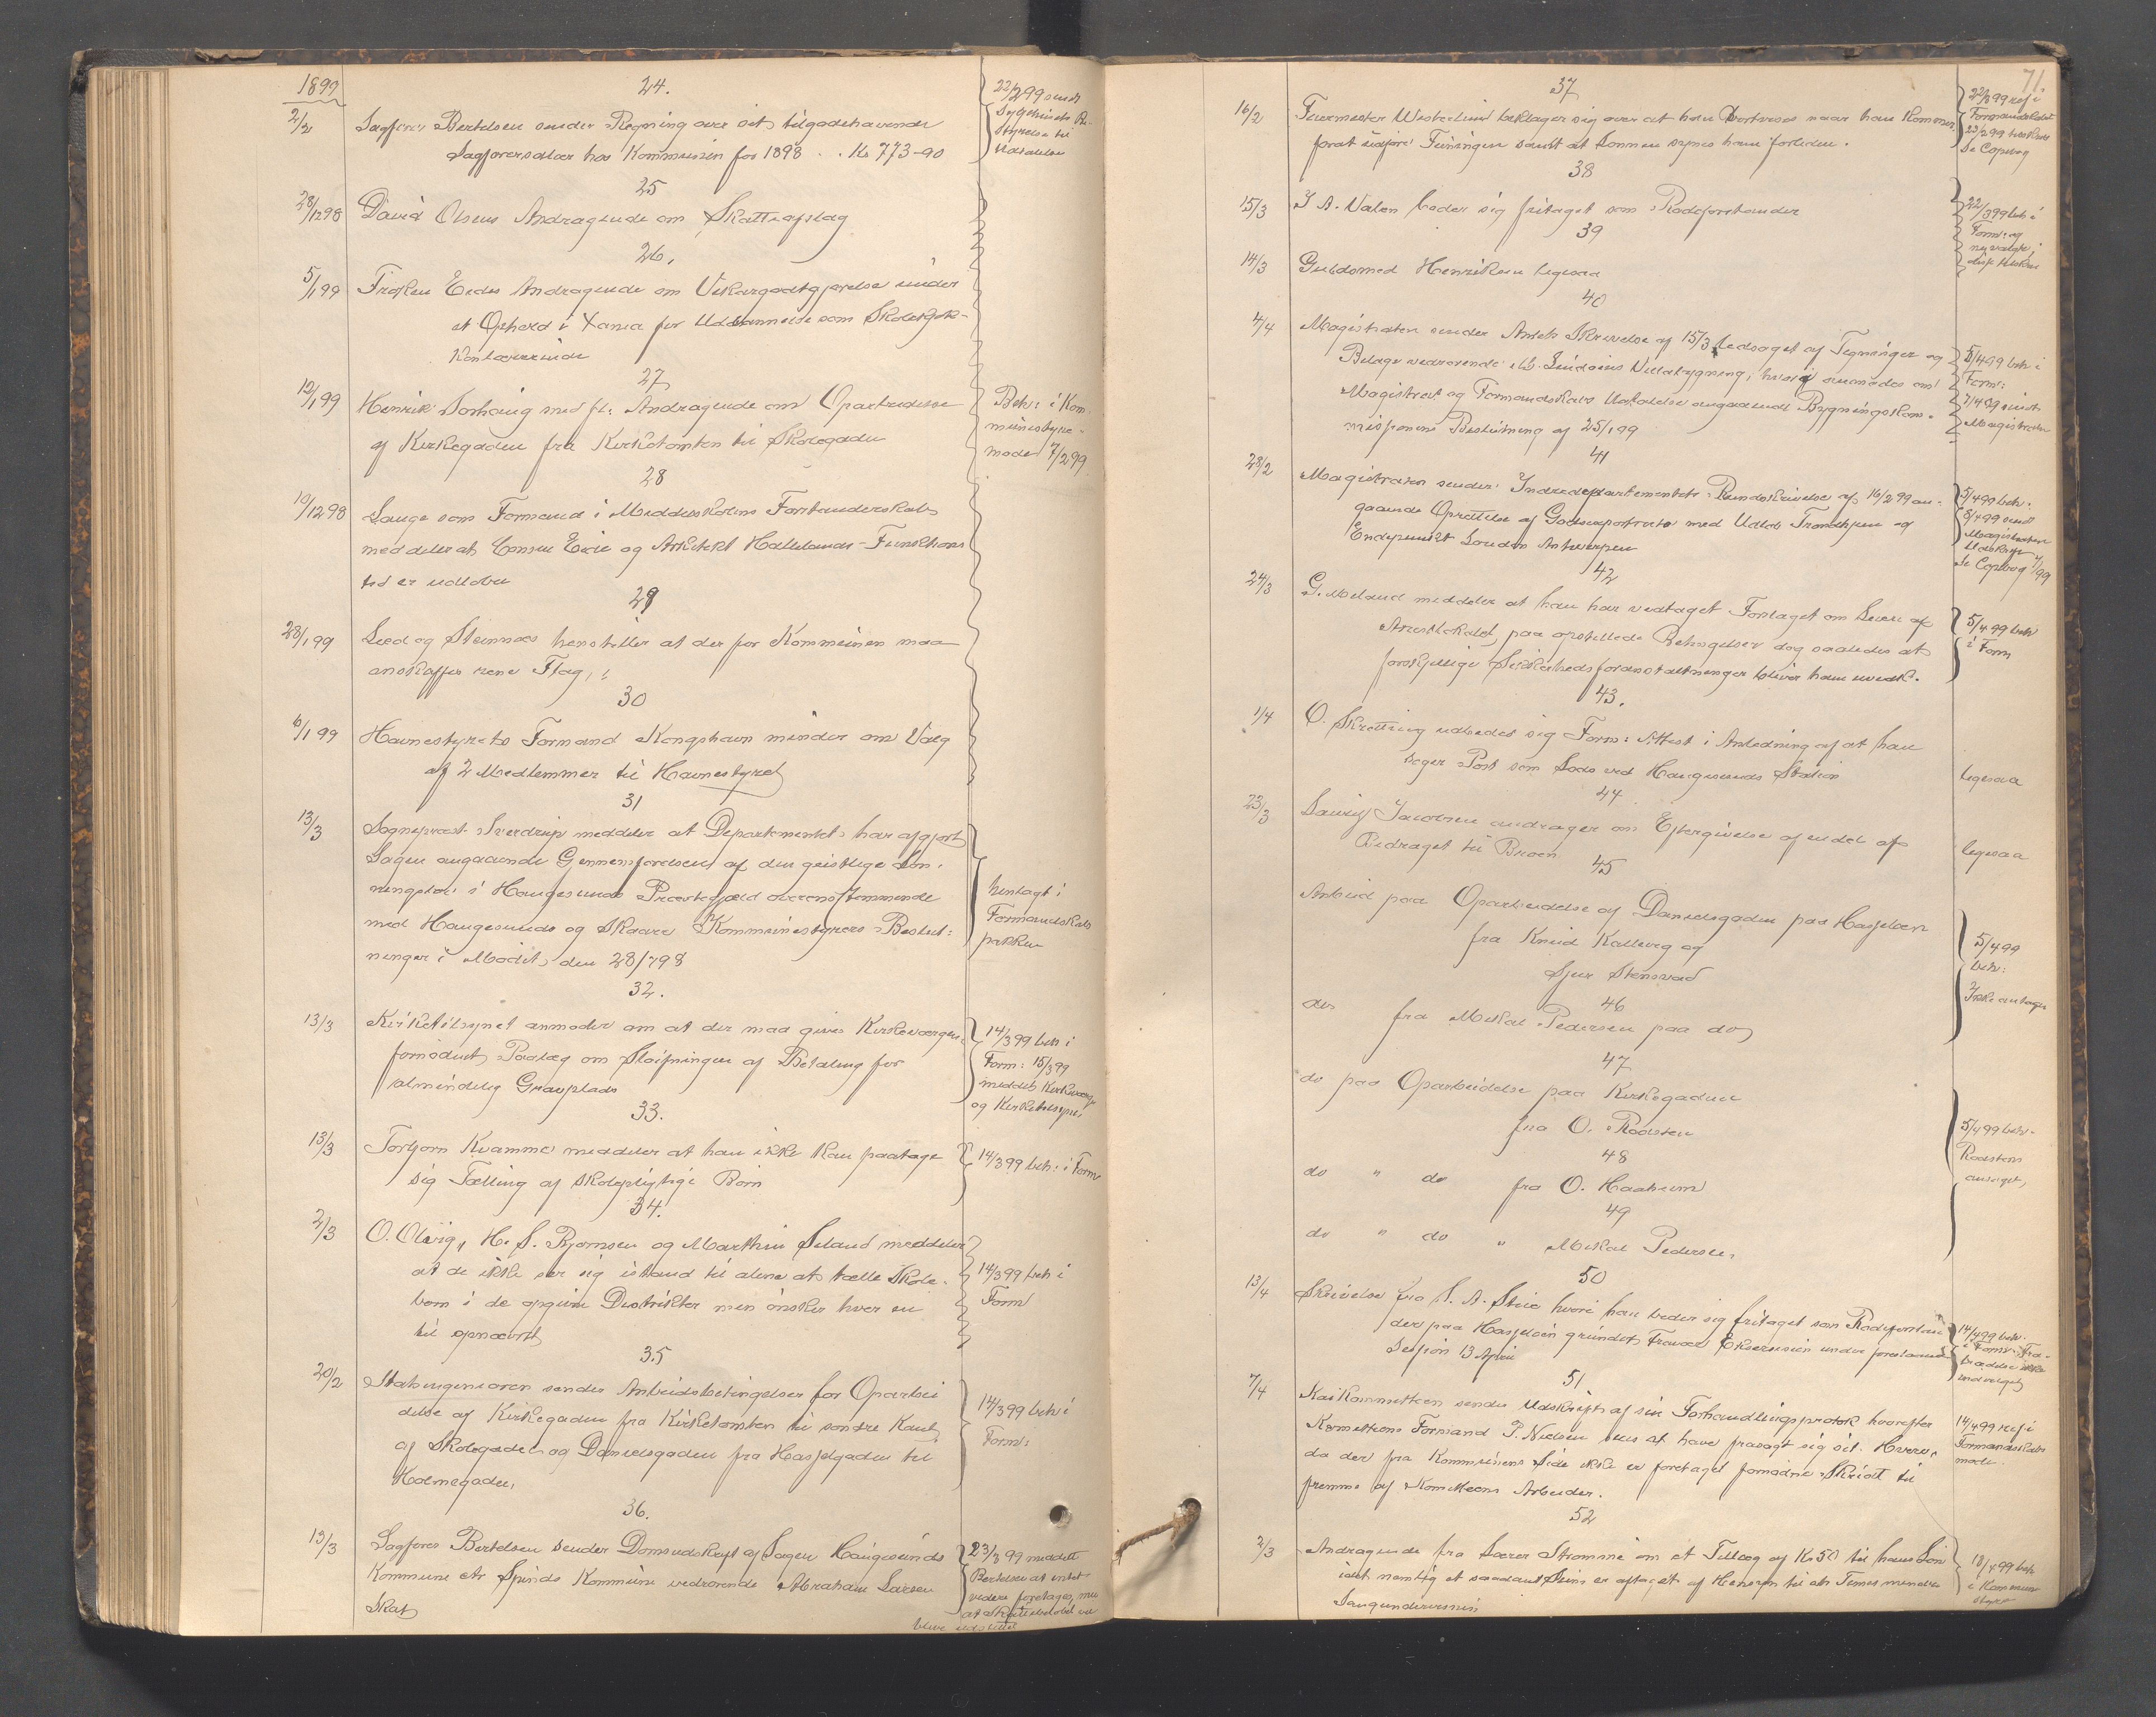 1899
24.
2/2 Sagfører Bertelsen sender Regning over sit tilgodehavende
Sagførersalær hos Kommunen for 1898 . . Kr 773-90
22/2 99 sendt
Sygehusets Be-
styrelse til
Udtalelse
25
28/12 98 David Olsens Andragende om Skatteafslag
26,
5/1 99 Frøken Eides Andragende om Vikargodtgjørelse under
et Ophold i Xania for Uddannelse som Skolekjøk-
kenlærerinde
27
12/1 99 Henrik Sørhaug med fl. Andragende om Oparbeidelse
af Kirkegaden fra Kirketomten til Skolegaden
Beh: i Kom
munestyre-
møde 7/2 99
28
10/12 98 Lange som Formand i Middelskolens Forstanderskab
meddeler at Consul Eide og Arkitekt Hallelands Funktions
tid er udløbet
29
28/1 99 Lied og Steinnæs henstiller at der for Kommunen maa
anskaffes rene Flag,
30
6/1 99 Havnestyrets Formand Kongshavn minder om Valg
af 2 Medlemmer til Havnestyret
31
13/3 Sogneprest Sverdrup meddeler at Departementet har afgjort
Sagen angaaende Gennemførelsen af den geistlige Løn-
ningslov i Haugesunds Præstegjæld overensstemmende
med Haugesunds og Skaare Kommunestyrers Beslut-
ninger i Mødet den 28/7 98
henlagt i
Formandskabs
pakken
32.
13/3 Kirketilsynet anmoder om at der maa gives Kirkeværgen
fornødent Paalæg om Sløifningen af Betaling for
almindelig Gravplads
14/3 99 beh i
Form: 15/3 99
meddelt Kirkeværge
og Kirketilsynet
33.
13/3 Torbjørn Kvamme meddeler at han ikke kan paatage
sig Tælling af skolepligtige Børn
14/3 99 beh: i Form
34.
2/3 O. Olvig, H. S. Bjørnsen og Marthin Seland meddeler
at de ikke ser sig istand til alene at tælle Skole-
børn i de opgivne Distrikter men ønsker hver en
til opnævnt
14/3 99 beh i
Form
35
20/2 Stadsingeniøren sender Arbeidsbetingelser for Oparbei
delse af Kirkegaden fra Kirketomten til søndre Kant
af Skolegaden og Danielsgaden fra Hasselgaden til
Holmegaden,
14/3 99 beh i
Form:
36.
13/3 Sagfører Bertelsen sender Domsudskrift af Sagen Haugesunds
Kommune ctr Spinds Kommune vedrørende Abraham Larsen
Skat
23/3 99 meddelt
Bertelsen at intet
videre foretages, men
at Skattebeløbet vil
blive udslettet
71.
37
16/2 Feiermester Westerlund beklager sig over at han bortvises naar han kommer
forat udføre Feiningen samt at Lønnen synes ham forliden.
22/3 99 ref i
Formandskabet
23/2 99 besked
Se Copibog
38
15/3 J A. Valen beder sig fritaget som Rodeforstander
22/3 99 beh i
Form: og
ny valgt
39
14/3 Guldsmed Henriksen ligesaa
40
4/4 Magistraten sender Amtets Skrivelse af 15/3 ledsaget af Tegninger og
Bilage vedrørende Lindøens Villabygning, hvori anmodes om
Magistrat og Formandskabs Udtalelse angaaende Bygningskom-
missionens Beslutning af 25/1 99
5/4 99 beh i
Form:
7/4 99 sendt
Magistraten
41
28/2 Magistraten sender Indredepartementets Rundskrivelse af 16/2 99 an-
gaaende Oprettelse af Godsexportrute med Udløb Trondhjem og
Endepunkt London Antwerpen
5/4 99 beh.
8/4 99 sendt
Magistraten
Udskrift
Se Copibog
42
24/3 G. Meland meddeler at han har vedtaget Forslaget om Leien af
Arrestlokalet, paa opstillede Betingelser dog saaledes at
forskjellige Sikkerhedsforanstaltninger bliver ham
5/4 99 beh
i Form
43.
1/4 O. Skretting udbeder sig Form: Attest i Anledning af at han
søger Post som Lods ved Haugesunds Station
ligesaa
44
23/3 Lauritz Jacobsen andrager om Eftergivelse af endel af
Bidraget til Broen
ligesaa
45
Anbud paa Oparbeidelse af Danielsgaden paa Hasseløen
fra Knud Kallevig og
Sjur Stensvad
5/4 99
beh:
Ikke antaget
46
do fra Mikal Pedersen paa do
47
do paa Oparbeidelse paa Kirkegaden
fra O. Rødsten
5/4 99 beh.
Rødstens
antaget,
48
do " do fra O. Haaheim
49
do " do " Mikal Pedersen,
50
13/4 Skrivelse fra S. A. Stue hvori han beder sig fritaget som Rodeforstan
der paa Hasseløen grundet Fravær
Session 13 April
14/4 99 beh.
i Form: Fra-
trædelse ikke
indvilget
51
7/4 Kaikommitteen sender Udskrift af sin Forhandlingsprotok hvorefter
Komiteens Formand P. Nielsen sees at have frasagt sig sit Hverv,
da der fra Kommunens Side ikke er foretaget fornødne Skridt til
fremme af Komiteens Arbeider.
14/4 99 ref i
Formandskabs
møde.
52
2/3 Andragende fra Lærer Strømme om et Tillæg af Kr 50 til hans Løn
idet nemlig et saadant Trin er aftaget af Hensyn til en Times mindre
Sangundervisning
18/4 99 beh
i Kommune
styre